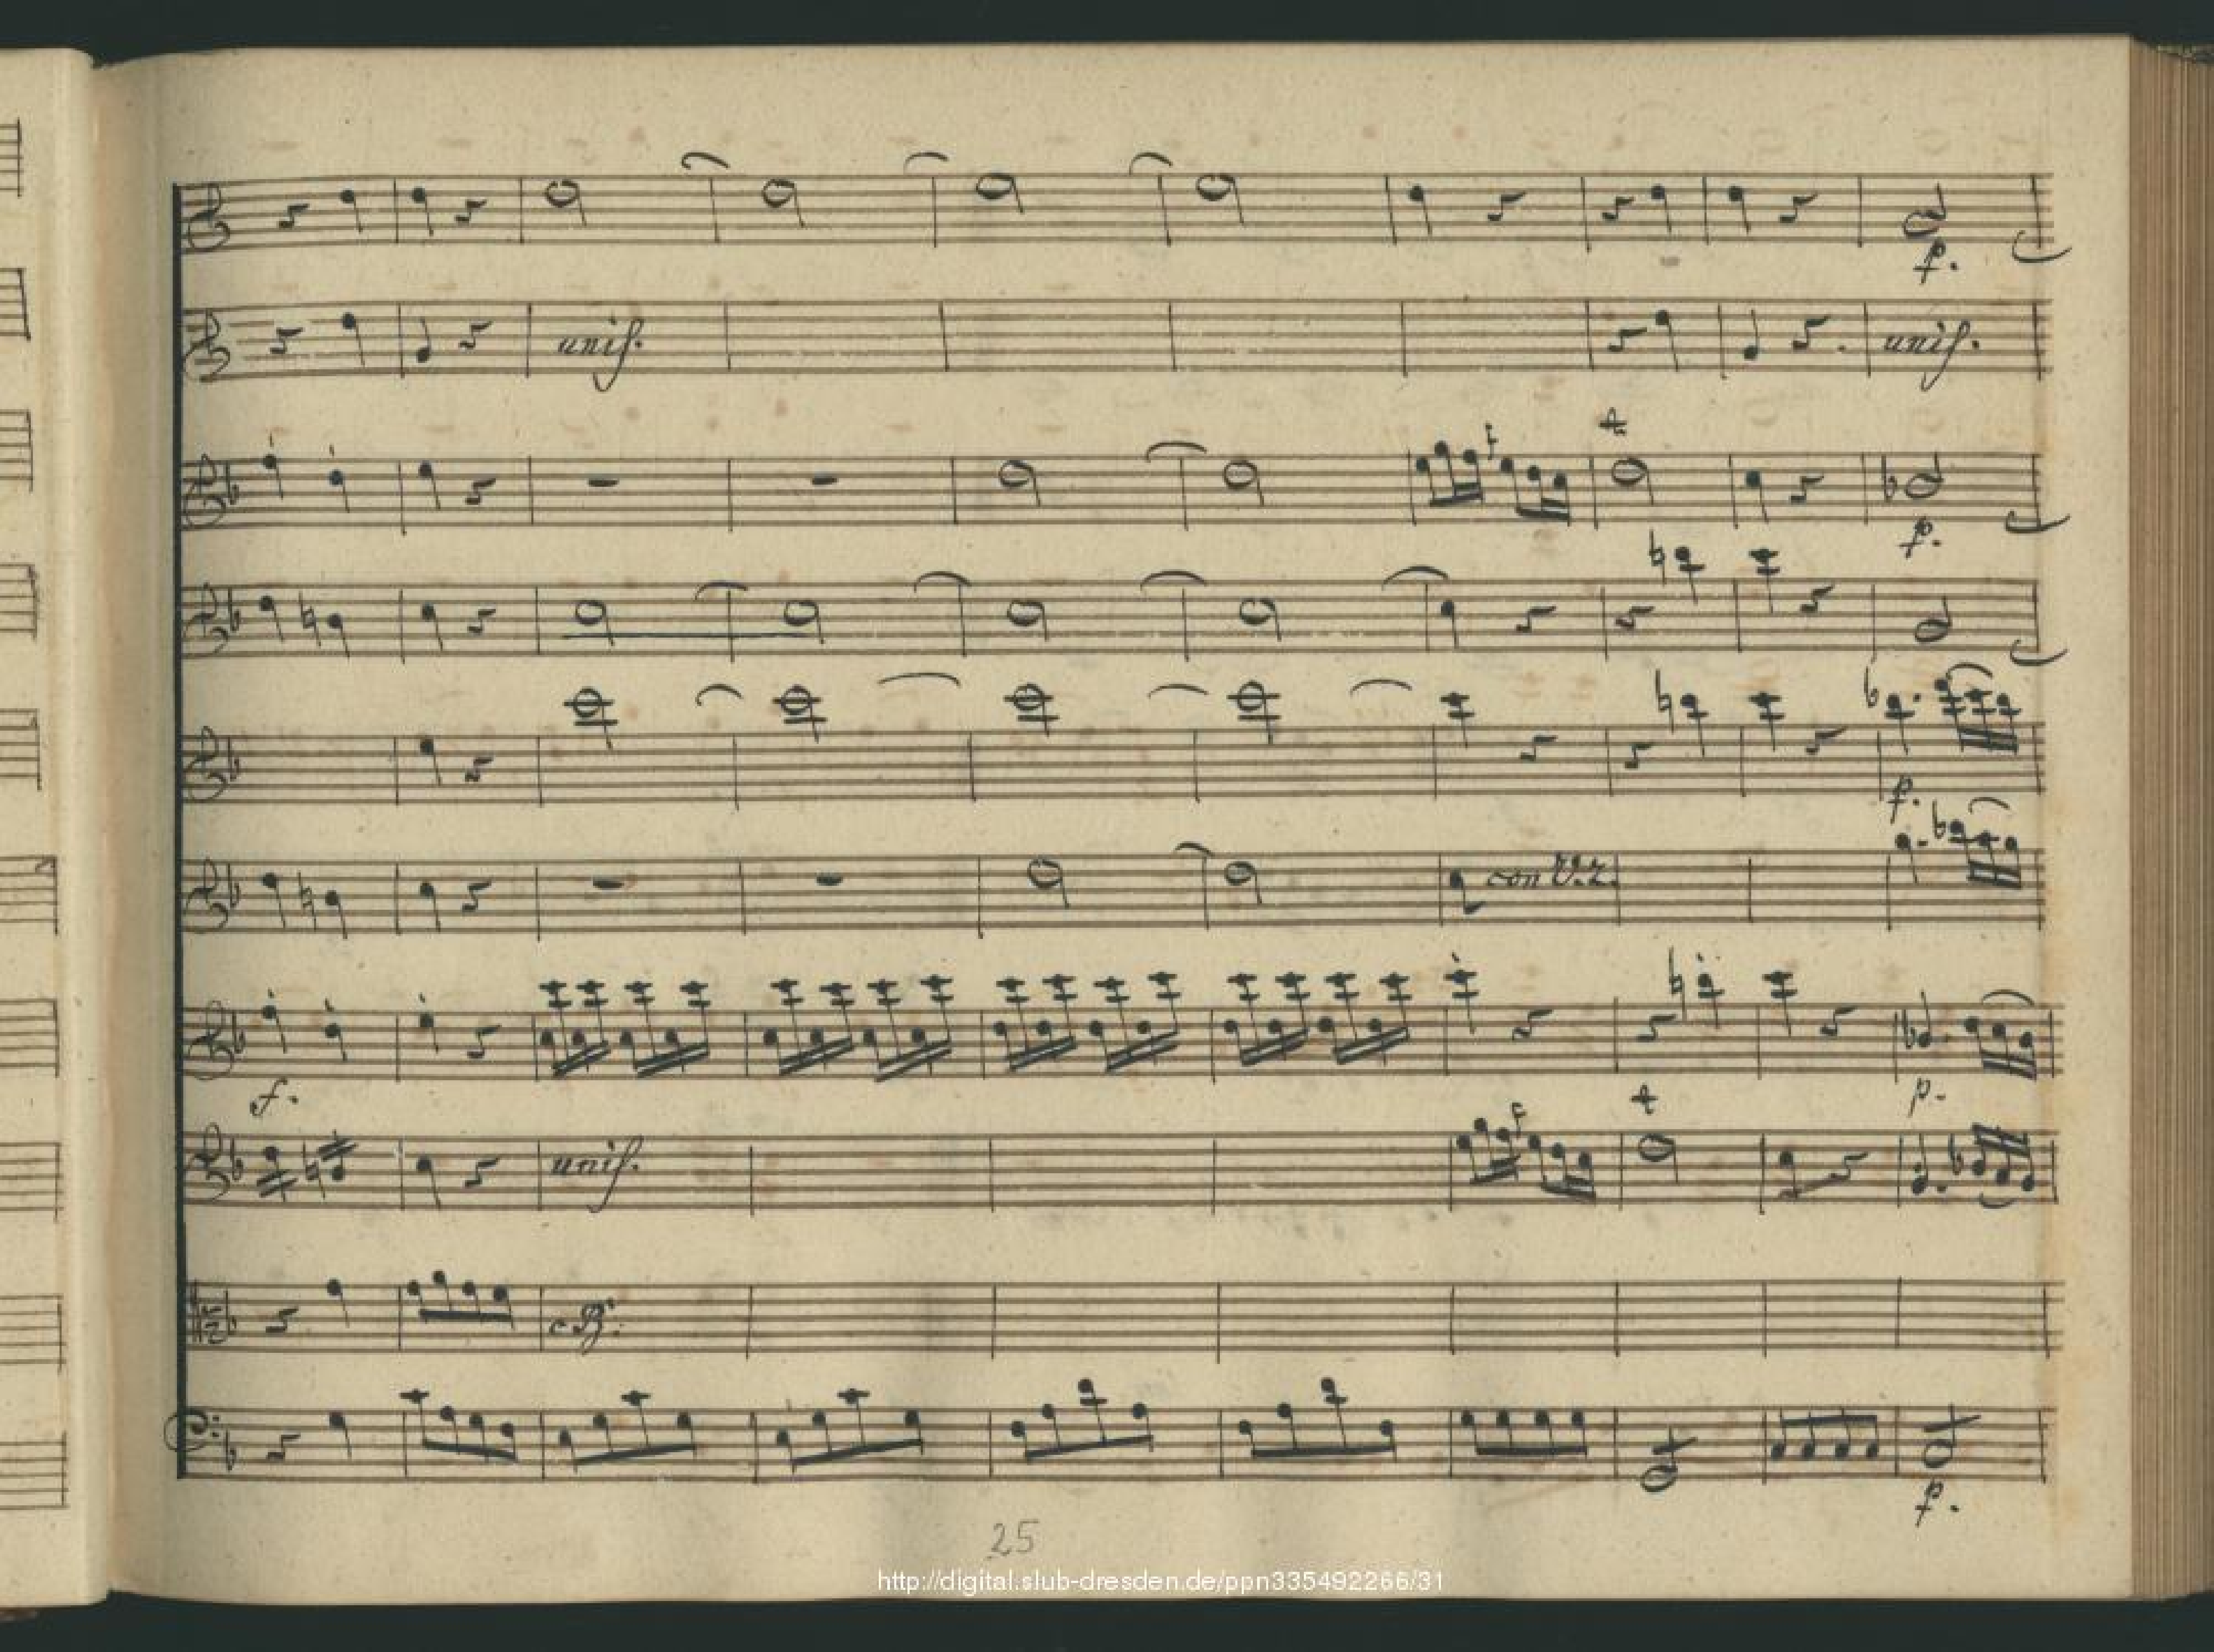 p.
unis. unis.
p.
p.
con V. 2.
f. p.
unis.
c B:
p.
25
http://digital.slub-dresden.de/ppn335492266/31